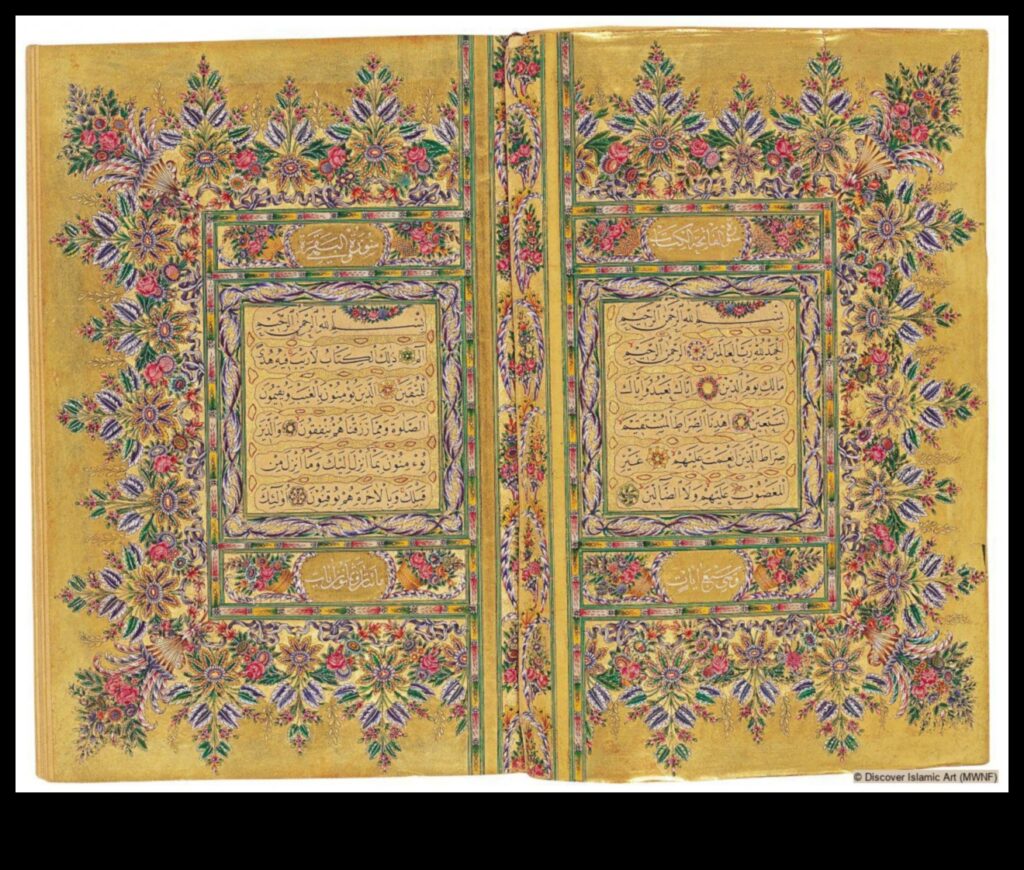 سورة فاتحة الكتاب
بسم الله الرحمن الرحيم
الحمد لله رب العالمين الرحمن الرحيم
مالك يوم الدين اياك نعبد واياك
نستعين اهدنا الصراط المستقيم
صراط الذين انعمت عليهم غير
المغضوب عليهم ولا الضالين
وهي سبع ايات
سورة البقرة
بسم الله الرحمن الرحيم
الم ذلك الكتاب لا ريب فيه هدى
للمتقين الذين يؤمنون بالغيب ويقيمون
الصلوة ومما رزقناهم ينفقون والذين
يؤمنون بما انزل اليك وما انزل من
قبلك وبالاخرة هم يوقنون اولئك
© Discover Islamic Art (MWNF)